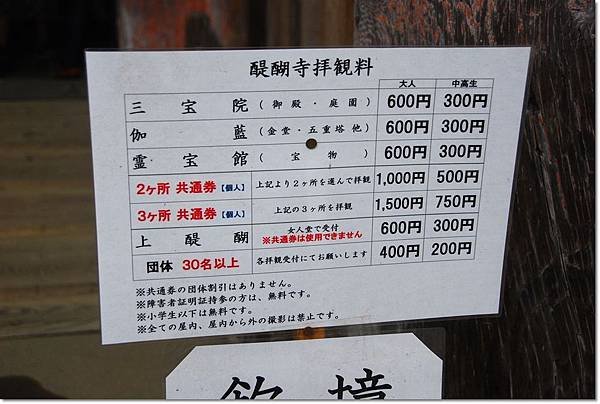 醍醐寺拝観料
大人 中高生
三宝院 (御殿・庭園) 600円 300円
伽藍 (金堂・五重塔 他) 600円 300円
霊宝館 (宝物) 600円 300円
2ヶ所 共通券【個人】 上記より2ヶ所を選んで拝観 1,000円 500円
3ヶ所 共通券【個人】 上記の3ヶ所を拝観 1,500円 750円
上醍醐 女人堂で受付 600円 300円
※共通券は使用できません
団体 30名以上 各拝観受付にてお願いします 400円 200円
※共通券の団体割引はありません。
※障害者証明証持参の方は、無料です。
※小学生以下は無料です。
※全ての屋内、屋内から外の撮影は禁止です。